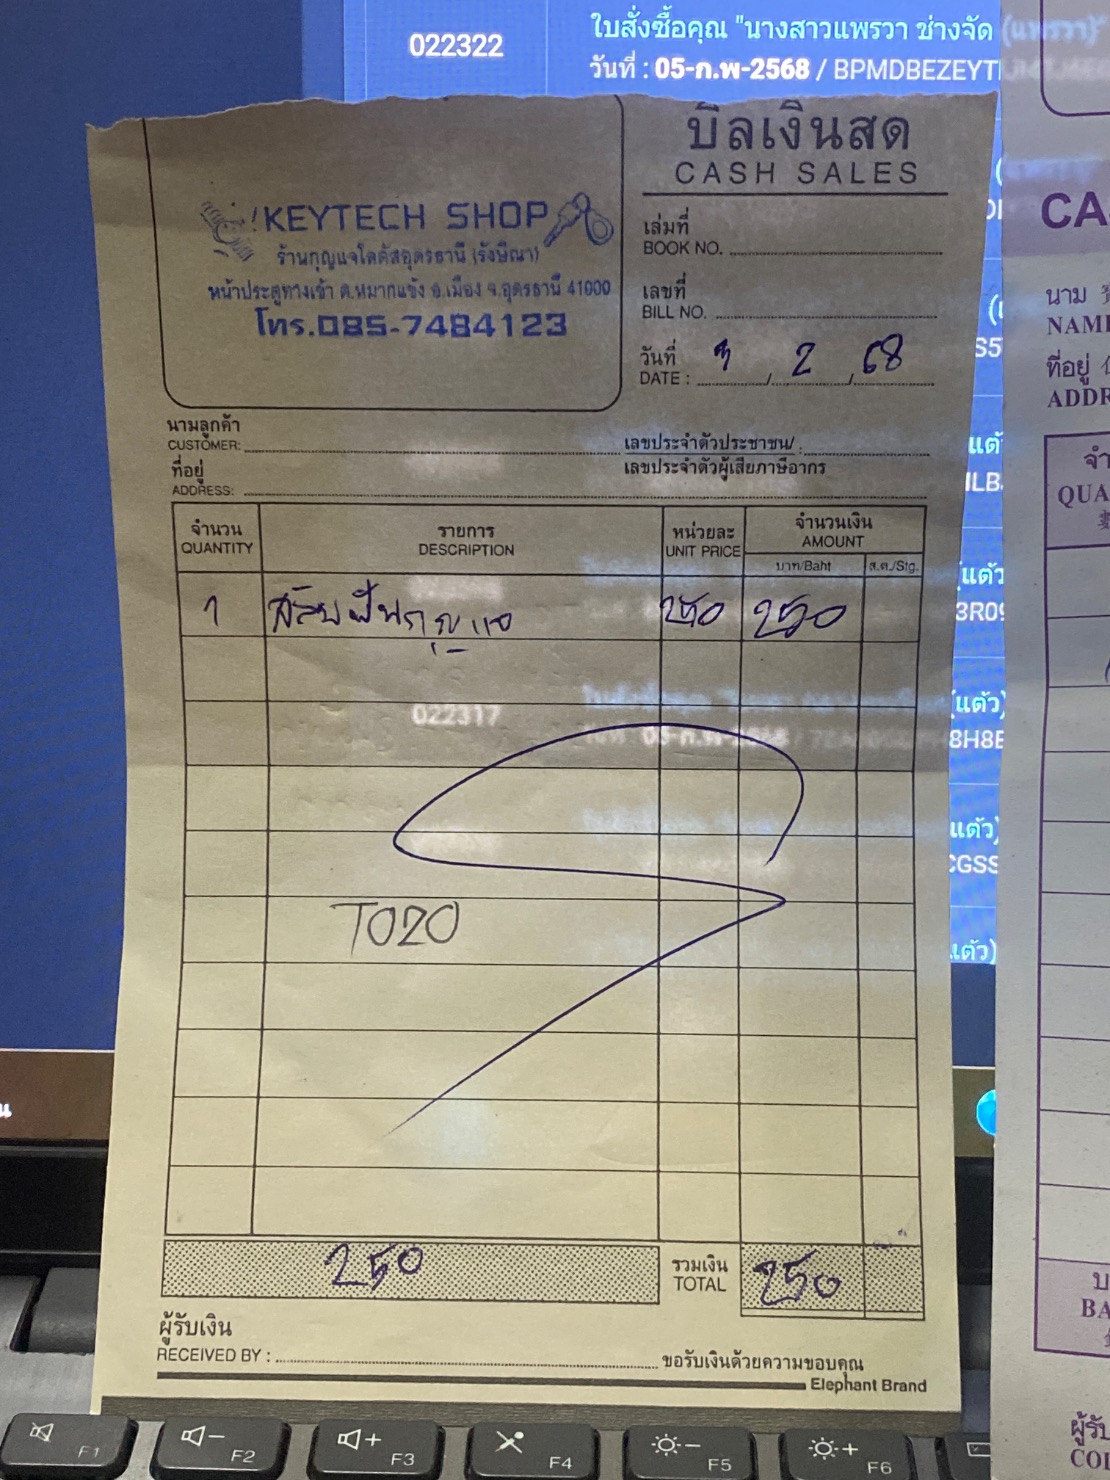 022322
ใบสั่งซื้อคุณ "นางสาวแพรวา ช่างจัด (แพรวา)"
วันที่ : 05-ก.พ-2568 / BPMDBEZEYT
บิลเงินสด
CASH SALES
!KEYTECH SHOP
ร้านกุญแจโลตัสอุดรธานี (รังษิณา)
หน้าประตูทางเข้า ต.หมากแข้ง อ.เมือง จ.อุดรธานี 41000
โทร.085-7484123
เล่มที่
BOOK NO.
เลขที่
BILL NO.
วันที่ 3 2 68
DATE : / /
นามลูกค้า
CUSTOMER:
เลขประจำตัวประชาชน/ :
ที่อยู่
เลขประจำตัวผู้เสียภาษีอากร
ADDRESS:
จำนวน รายการ หน่วยละ จำนวนเงิน
QUANTITY DESCRIPTION UNIT PRICE AMOUNT
บาท/Baht ส.ต./Stg.
1 สลับฟันกุญแจ 250 250
022317
05-ก.พ-2568
TOZO
250 รวมเงิน 250
TOTAL
ผู้รับเงิน
RECEIVED BY : ขอรับเงินด้วยความขอบคุณ
Elephant Brand
CA
นาม
NAME
ที่อยู่
ADDR
QUA
BA
F1 F2 F3 F4 F5 F6